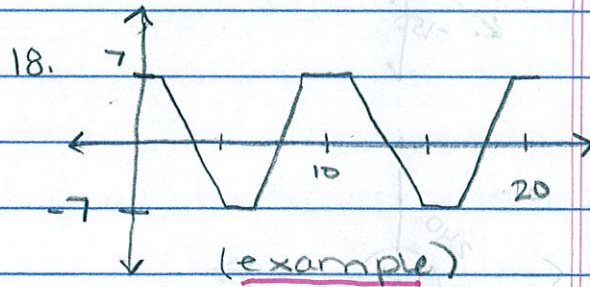 18.
7
10
20
-7
(example)